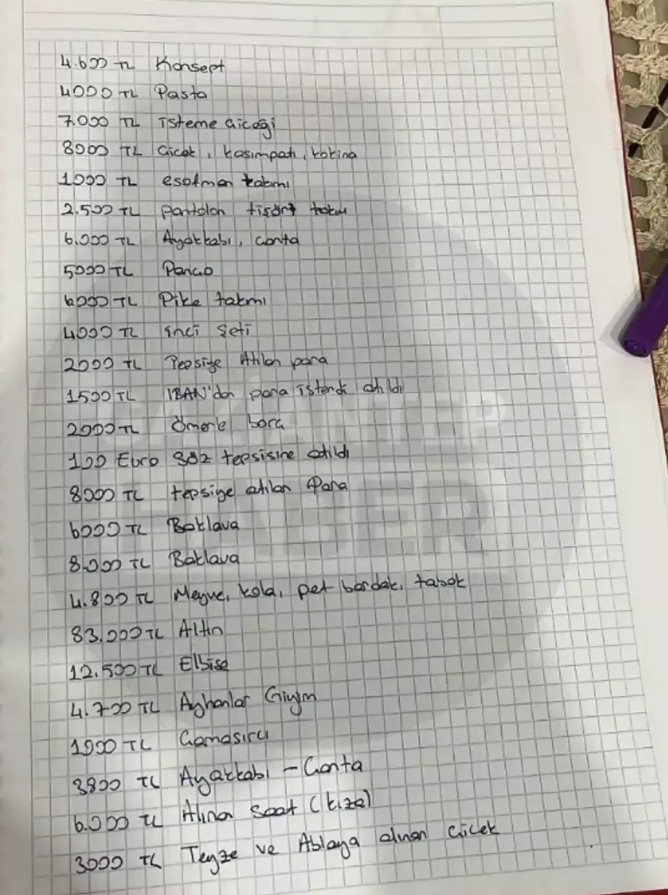 4.600 TL Konsept
4000 TL Pasta
7.000 TL isteme çiçeği
8000 TL Çiçek, kasımpatı, kokina
1000 TL eşofman takımı
2.500 TL pantolon tişört takım
6.000 TL Ayakkabı, çanta
5000 TL Panço
6.000 TL Pike takımı
4000 TL inci seti
2000 TL Tepsiye Atılan para
1500 TL IBAN'dan para istendi atıldı
2000 TL Ömerle bora
100 Euro söz tepsisine atıldı
8000 TL tepsiye atılan para
6000 TL Baklava
8.000 TL Baklava
4.800 TL Meyve, kola, pet bardak, tabak
83.000 TL Altın
12.500 TL Elbise
4.700 TL Ayhanlar Giyim
1900 TL Çamaşırcı
3800 TL Ayakkabı - Çanta
6.000 TL Alınan Saat (kıza)
3000 TL Teyze ve Ablaya alınan çiçek
HABER